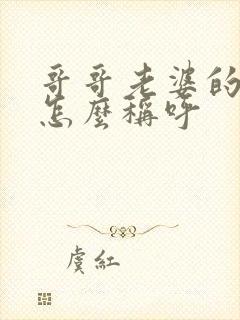 哥哥老婆的
怎麼稱呼
虞紅